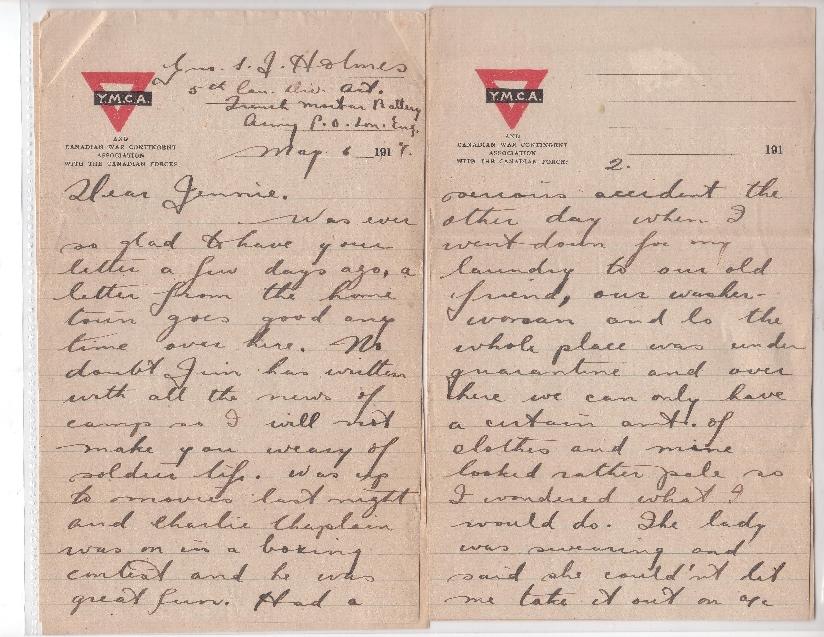 S. J. Holmes
5th Can. Div. Art.
Trench Mortar Battery
Army P.O. Lon. Eng.
Y.M.C.A.
AND
CANADIAN WAR CONTINGENT
ASSOCIATION
WITH THE CANADIAN FORCES
May 6 191
Dear Jennie.
Was ever
so glad to have your
letter a few days ago, a
letter from the home
town goes good any
time over here. No
doubt Jim has written
with all the news of
camp so I will not
make you weary of
soldier life. Was up
to movies last night
and Charlie Chaplain
was on in a boxing
contest and he was
great fun. Had a
Y.M.C.A.
AND
CANADIAN WAR CONTINGENT
ASSOCIATION
WITH THE CANADIAN FORCES
191
2.
serious accident the
other day when I
went down for my
laundry to our old
friend, our washer-
woman and lo the
whole place was under
quarantine and over
here we can only have
a certain amt. of
clothes and mine
looked rather pale so
I wondered what I
would do. The lady
was swearing and
said she couldn't let
me take it out on a/c